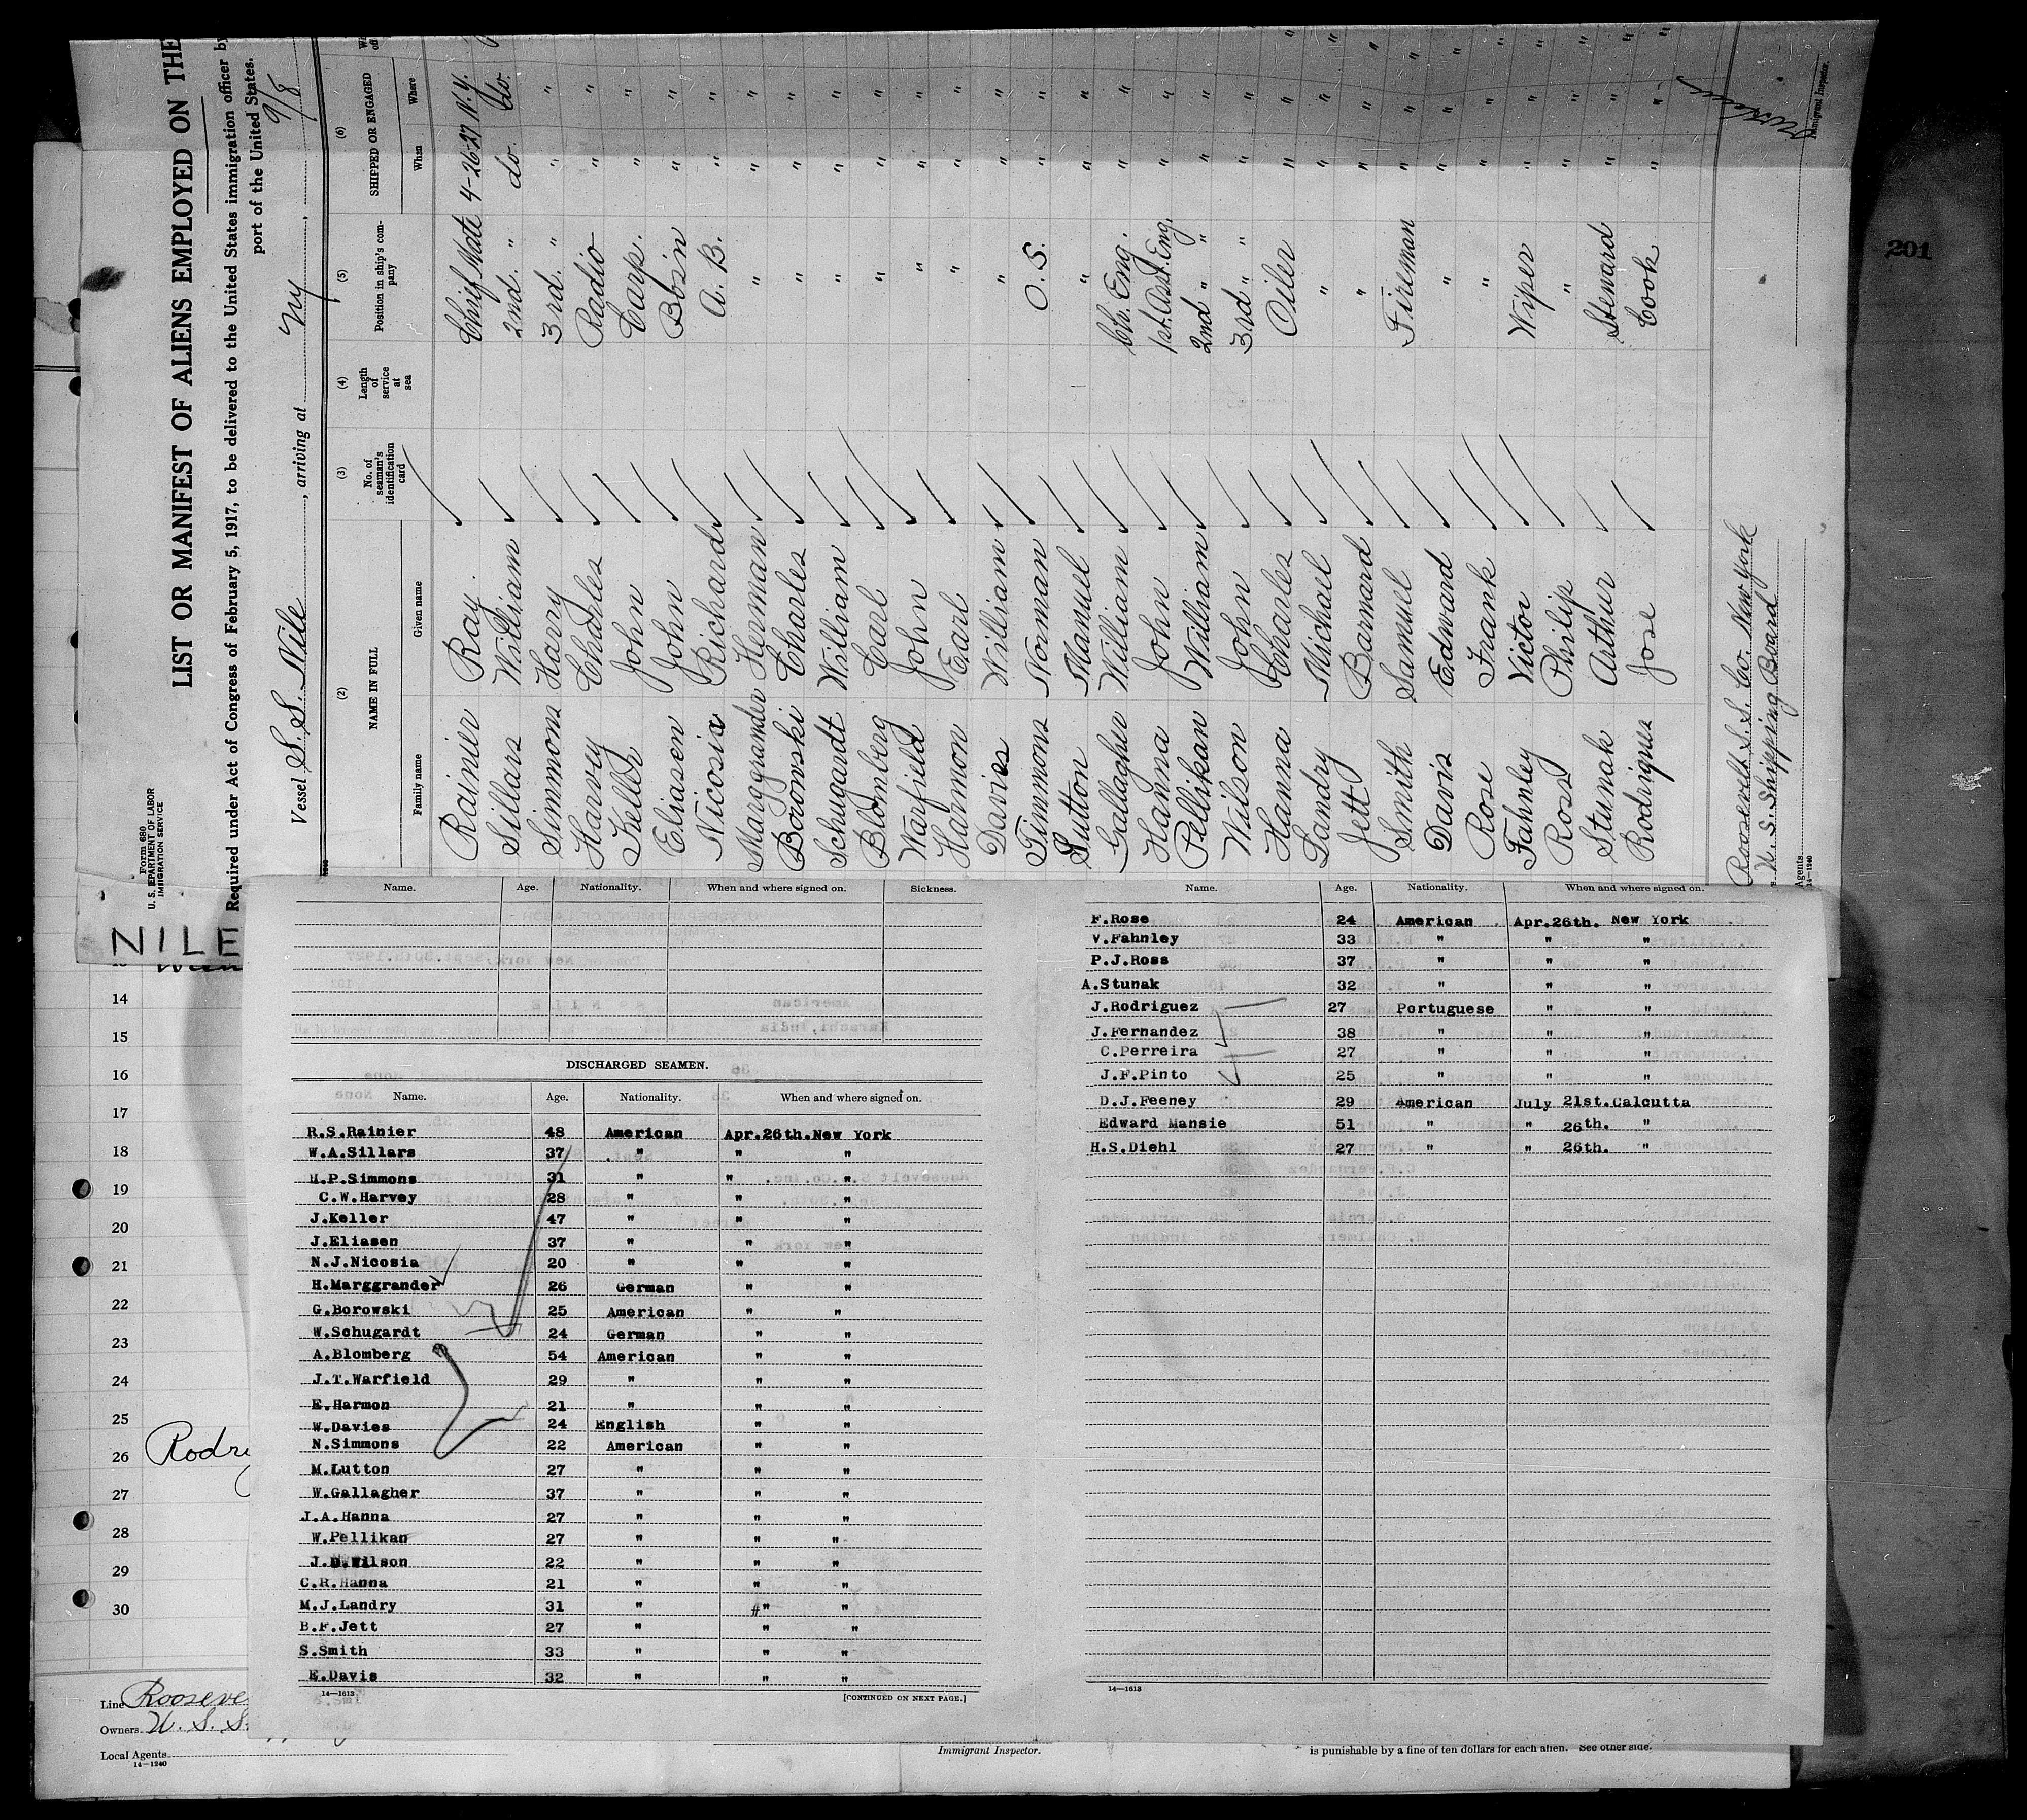 201
Form 680
U. S. DEPARTMENT OF LABOR
IMMIGRATION SERVICE
LIST OR MANIFEST OF ALIENS EMPLOYED ON THE
Required under Act of Congress of February 5, 1917, to be delivered to the United States immigration officer by
port of the United States.
9/8
Vessel S.S. Nile, arriving at Ny,
(2) (3) (4) (5) (6)
NAME IN FULL No. of seaman's identification card Length of service at sea Position in ship's company SHIPPED OR ENGAGED
Family name Given name When Where
Rainier Ray Chief Mate 4-26-27 N.Y.
Sillars William 2nd. " do. do.
Simmons Harry 3rd. " " "
Harvy Charles Radio " "
Keller John Carp. " "
Eliasen John Bos'n " "
Nicosia Richard A.B. " "
Marggrander Herman " " "
Borowski Charles " " "
Schugardt William " " "
Blomberg Carl " " "
Warfield John " " "
Harmon Earl " " "
Davies William " " "
Timmons Norman O.S. " "
Sutton Mamuel " " "
Gallagher William Ch. Eng. " "
Hanna John 1st. Asst. Eng. " "
Pellikan William 2nd " " "
Wilson John 3rd " " "
Hanna Charles Oiler " "
Landry Michael " " "
Jett Barnard " " "
Smith Samuel Fireman " "
Davis Edward " " "
Rose Frank " " "
Fahnley Victor Wiper " "
Ross Philip " " "
Stunak Arthur Steward " "
Rodriguez Jose Cook " "
Roosevelt S.S. Co. New York
U.S. Shipping Board
Agents
14—1240
Immigrant Inspector.
NILE
14
15
16
17
18
19
20
21
22
23
24
25
26 Rodri
27
28
29
30
Line Rooseve
Owners U. S. S.
Local Agents
14—1240
Immigrant Inspector.
is punishable by a fine of ten dollars for each alien. See other side.
Name. Age. Nationality. When and where signed on. Sickness.
DISCHARGED SEAMEN.
Name. Age. Nationality. When and where signed on.
R.S.Rainier 48 American Apr.26th.New York
W.A.Sillars 37 " " "
H.P.Simmons 31 " " "
C.W.Harvey 28 " " "
J.Keller 47 " " "
J.Eliasen 37 " " "
N.J.Nicosia 20 " " "
H.Marggrander 26 German " "
G.Borowski 25 American " "
W.Schugardt 24 German " "
A.Blomberg 54 American " "
J.T.Warfield 29 " " "
E.Harmon 21 " " "
W.Davies 24 English " "
N.Simmons 22 American " "
M.Lutton 27 " " "
W.Gallagher 37 " " "
J.A.Hanna 27 " " "
W.Pellikan 27 " " "
J.D.Wilson 22 " " "
C.R.Hanna 21 " " "
M.J.Landry 31 " #" "
B.F.Jett 27 " " "
S.Smith 33 " " "
E.Davis 32 " " "
14—1613
[CONTINUED ON NEXT PAGE.]
Name. Age. Nationality. When and where signed on.
F.Rose 24 American Apr.26th. New York
V.Fahnley 33 " " "
P.J.Ross 37 " " "
A.Stunak 32 " " "
J.Rodriguez 27 Portuguese " "
J.Fernandez 38 " " "
C.Perreira 27 " " "
J.F.Pinto 25 " " "
D.J.Feeney 29 American July 21st.Calcutta
Edward Mansie 51 " " 26th. "
H.S.Diehl 27 " " 26th. "
14—1613